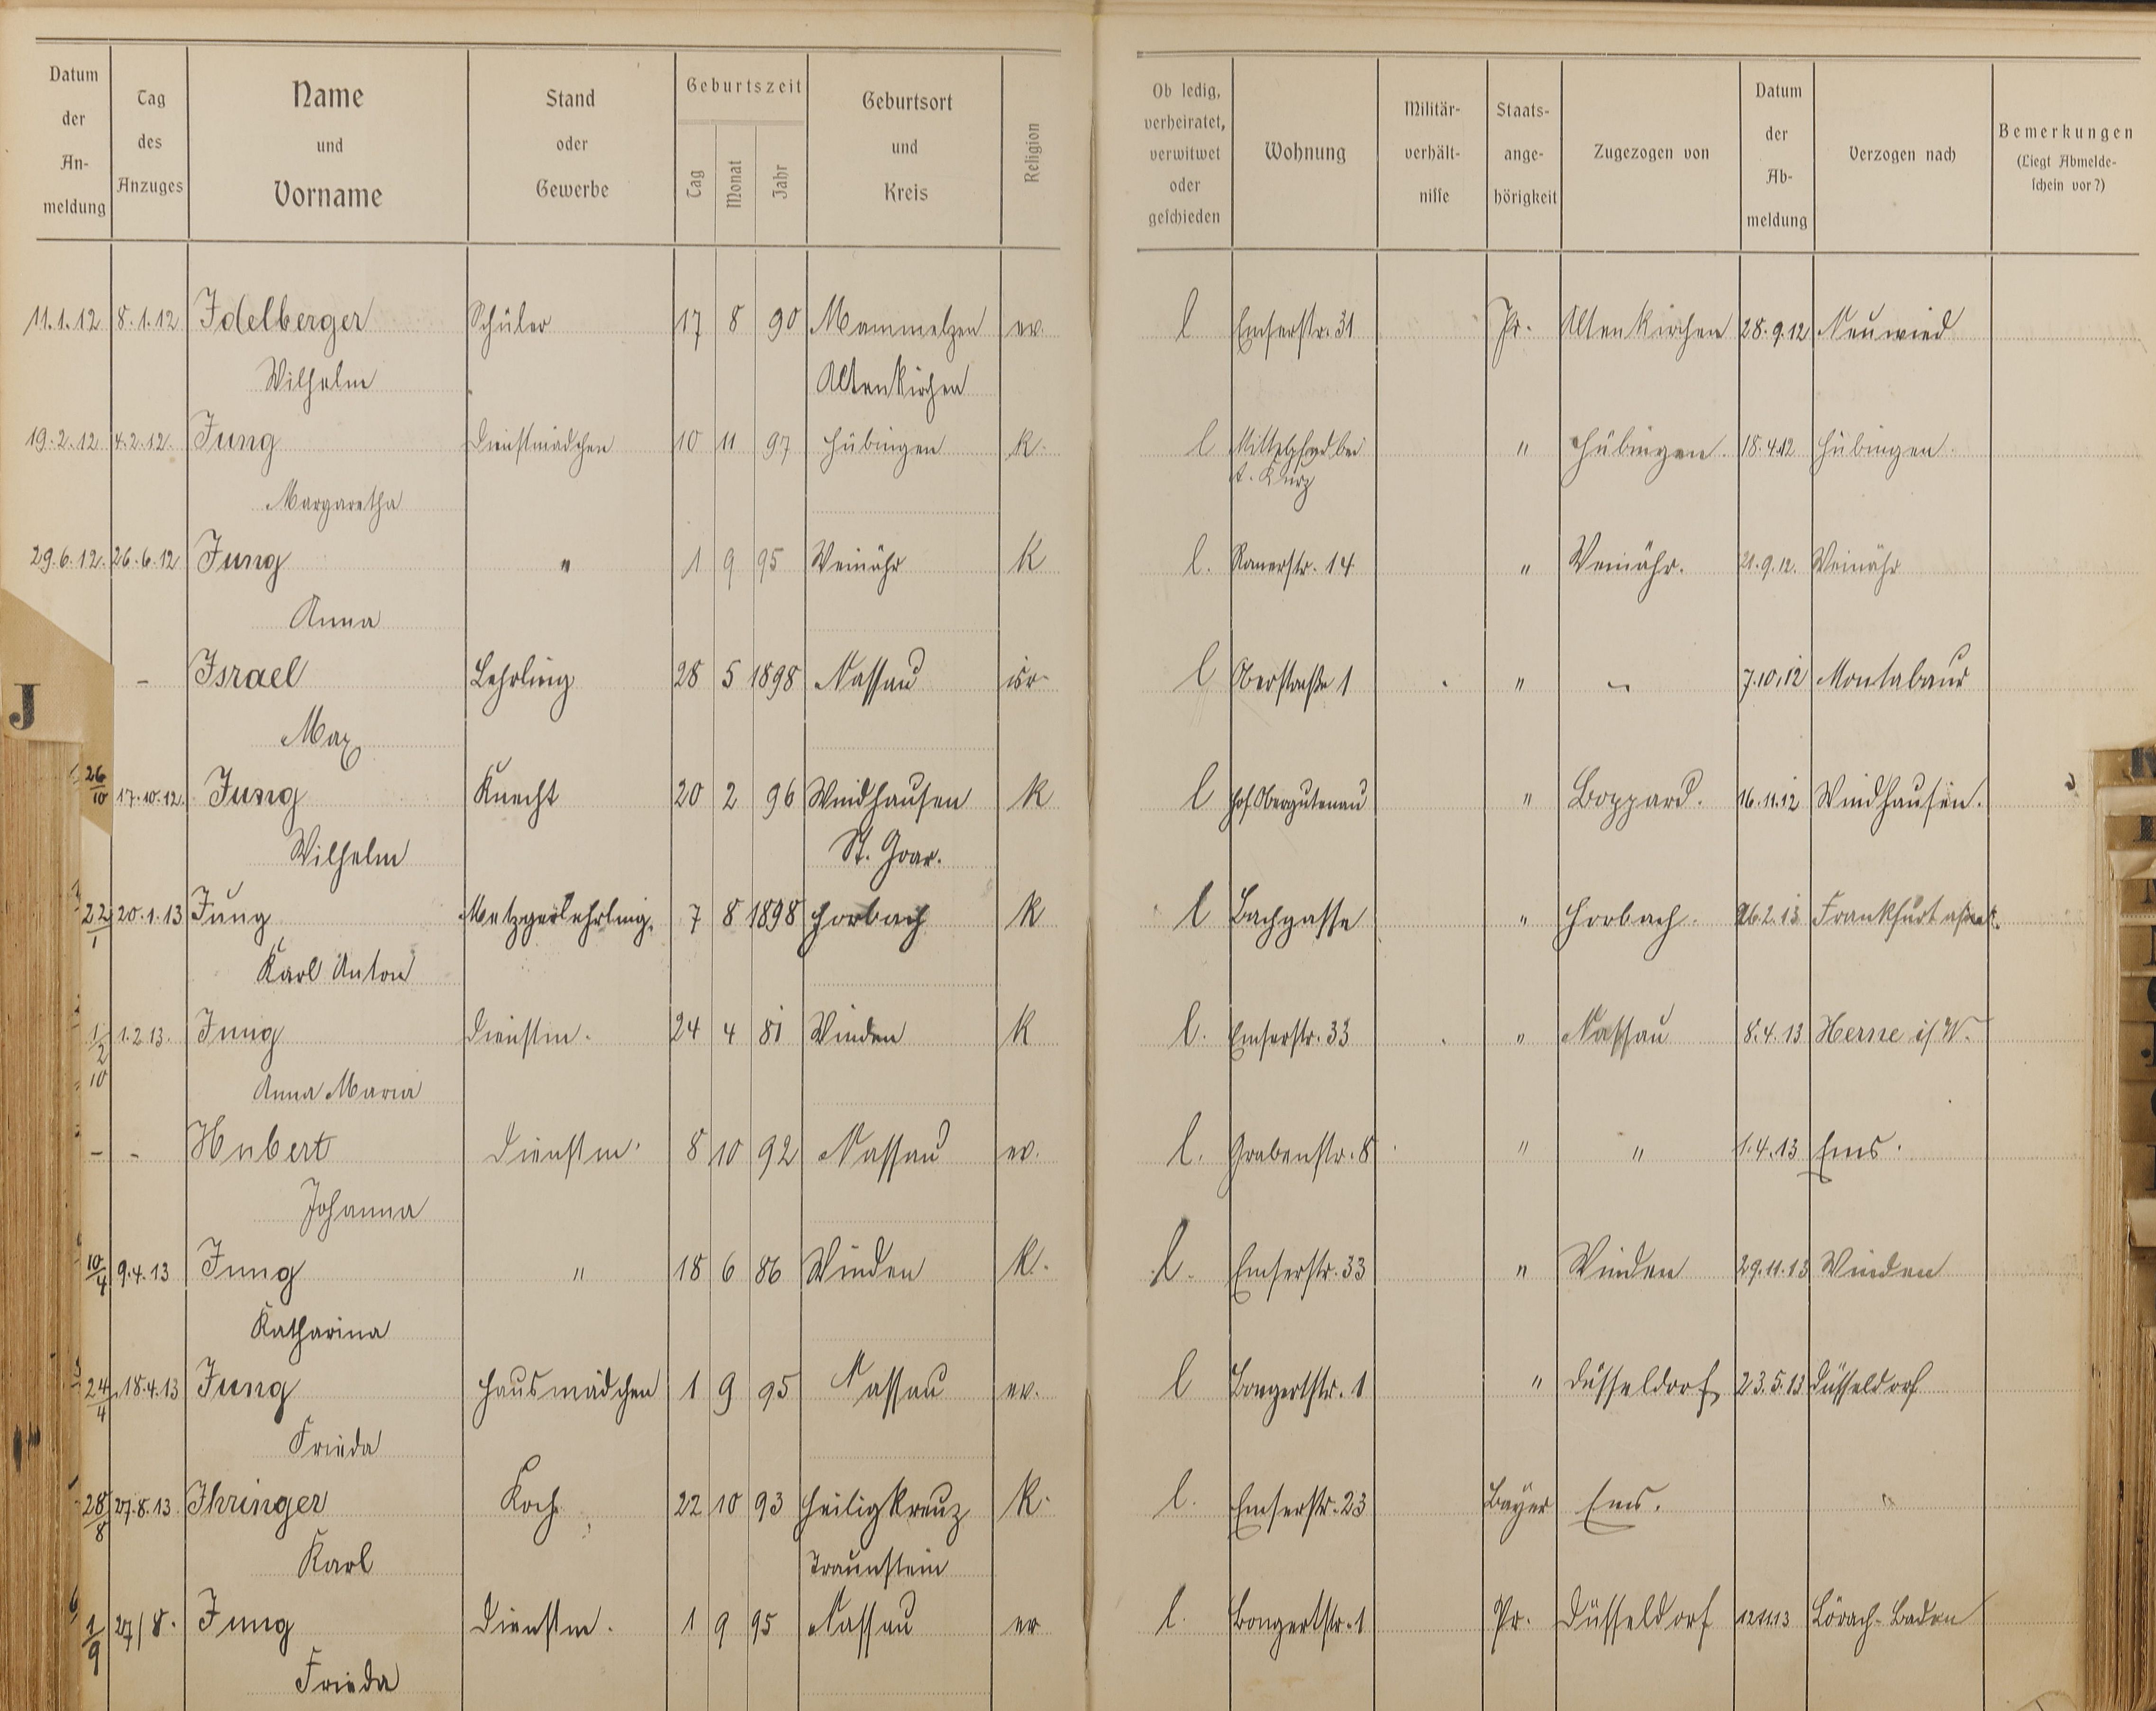 Datum der Anmeldung | Tag des Anzuges | Name und Vorname | Stand oder Gewerbe | Geburtszeit Tag Monat Jahr | Geburtsort und Kreis | Religion | Ob ledig, verheiratet, verwitwet oder geschieden | Wohnung | Militärverhältnisse | Staatsangehörigkeit | Zugezogen von | Datum der Abmeldung | Verzogen nach | Bemerkungen (Liegt Abmeldeschein vor?)
11.1.12 8.1.12 Idelberger Schüler 17 8 90 Mammelzen ev. l Emserstr. 31 Pr. Altenkirchen 28.9.12 Neuwied
Wilhelm Altenkirchen
19.2.12 4.2.12. Jung Dienstmädchen 10 11 97 Hübingen k. l bei " Hübingen. 18.4.12 Hübingen.
Margaretha A. Kurz
29.6.12. 26.6.12 Jung " 1 9 95 Weinähr K l. 14 " Weinähr. 21.9.12. Weinähr
Anna
J
- Israel Lehrling 28 5 1898 Nassau isr. l Oberstraße 1 " - 7.10.12 Montabaur
Max
26/10 17.10.12. Jung Knecht 20 2 96 Windhausen K l Hof Obergutenau " Boppard. 16.11.12 Windhausen.
Wilhelm St. Goar.
22/1 20.1.13 Jung Metzgerlehrling. 7 8 1898 Horbach K l Bachgasse " Horbach. 26.2.13 Frankfurt
Karl Anton
1/2 1.2.13. Jung Dienstm. 24 4 81 Winden K l. Emserstr. 33 " Nassau 8.4.13 Herne i/W.
10 Anna Maria
- - Hubert Dienstm. 8 10 92 Nassau ev. l. Grabenstr. 8 " " 1.4.13 Ems.
Johanna
10/4 9.4.13 Jung " 18 6 86 Winden K. l. Emserstr. 33 " Winden 29.11.13 Winden
Katharina
24/4 18.4.13 Jung Hausmädchen 1 9 95 Nassau ev. l Bongertstr. 1 " Düsseldorf 23.5.13 Düsseldorf
Frieda
28/8 27.8.13. Ihringer Koch 22 10 93 Heiligkreuz K. l. Emserstr. 23 Bayer Ems. "
Karl Traunstein
1/9 27/8. Jung Dienstm. 1 9 95 Nassau ev l. Bongertstr. 1 Pr. Düsseldorf Lörach-Baden
Frieda